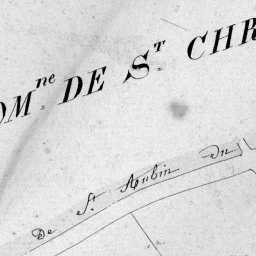 OMne DE St CHR
De St Aubin du